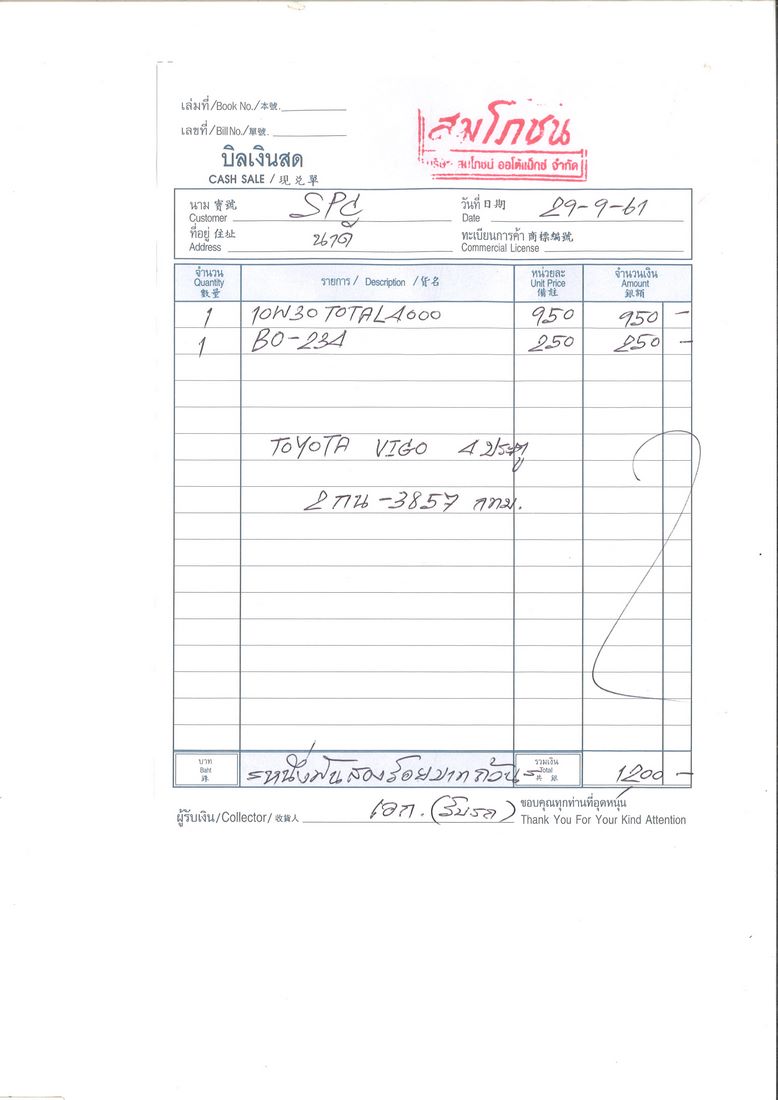 เล่มที่/Book No./本號.
เลขที่/Bill No./單號.
สมโภชน
บริษัท สมโภชน์ ออโต้แม็กซ์ จำกัด
บิลเงินสด
CASH SALE / 現兑單
นาม 寶號 Customer SPC วันที่ 日期 Date 29-9-61
ที่อยู่ 住址 Address นาดี ทะเบียนการค้า 商標編號 Commercial License
จำนวน Quantity 數量 รายการ / Description / 貨名 หน่วยละ Unit Price 備註 จำนวนเงิน Amount 銀額
1 10W30 TOTAL 4000 950 950 -
1 BO-234 250 250 -
TOYOTA VIGO 4 ประตู
2 กน - 3857 กทม.
บาท Baht 銖 = หนึ่งพันสองร้อยบาทถ้วน = รวมเงิน Total 共銀 1200 -
ผู้รับเงิน/Collector/收貨人 เอก. (รับรถ) ขอบคุณทุกท่านที่อุดหนุน
Thank You For Your Kind Attention